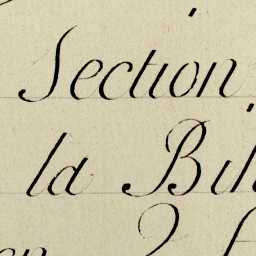 Section
la Bil